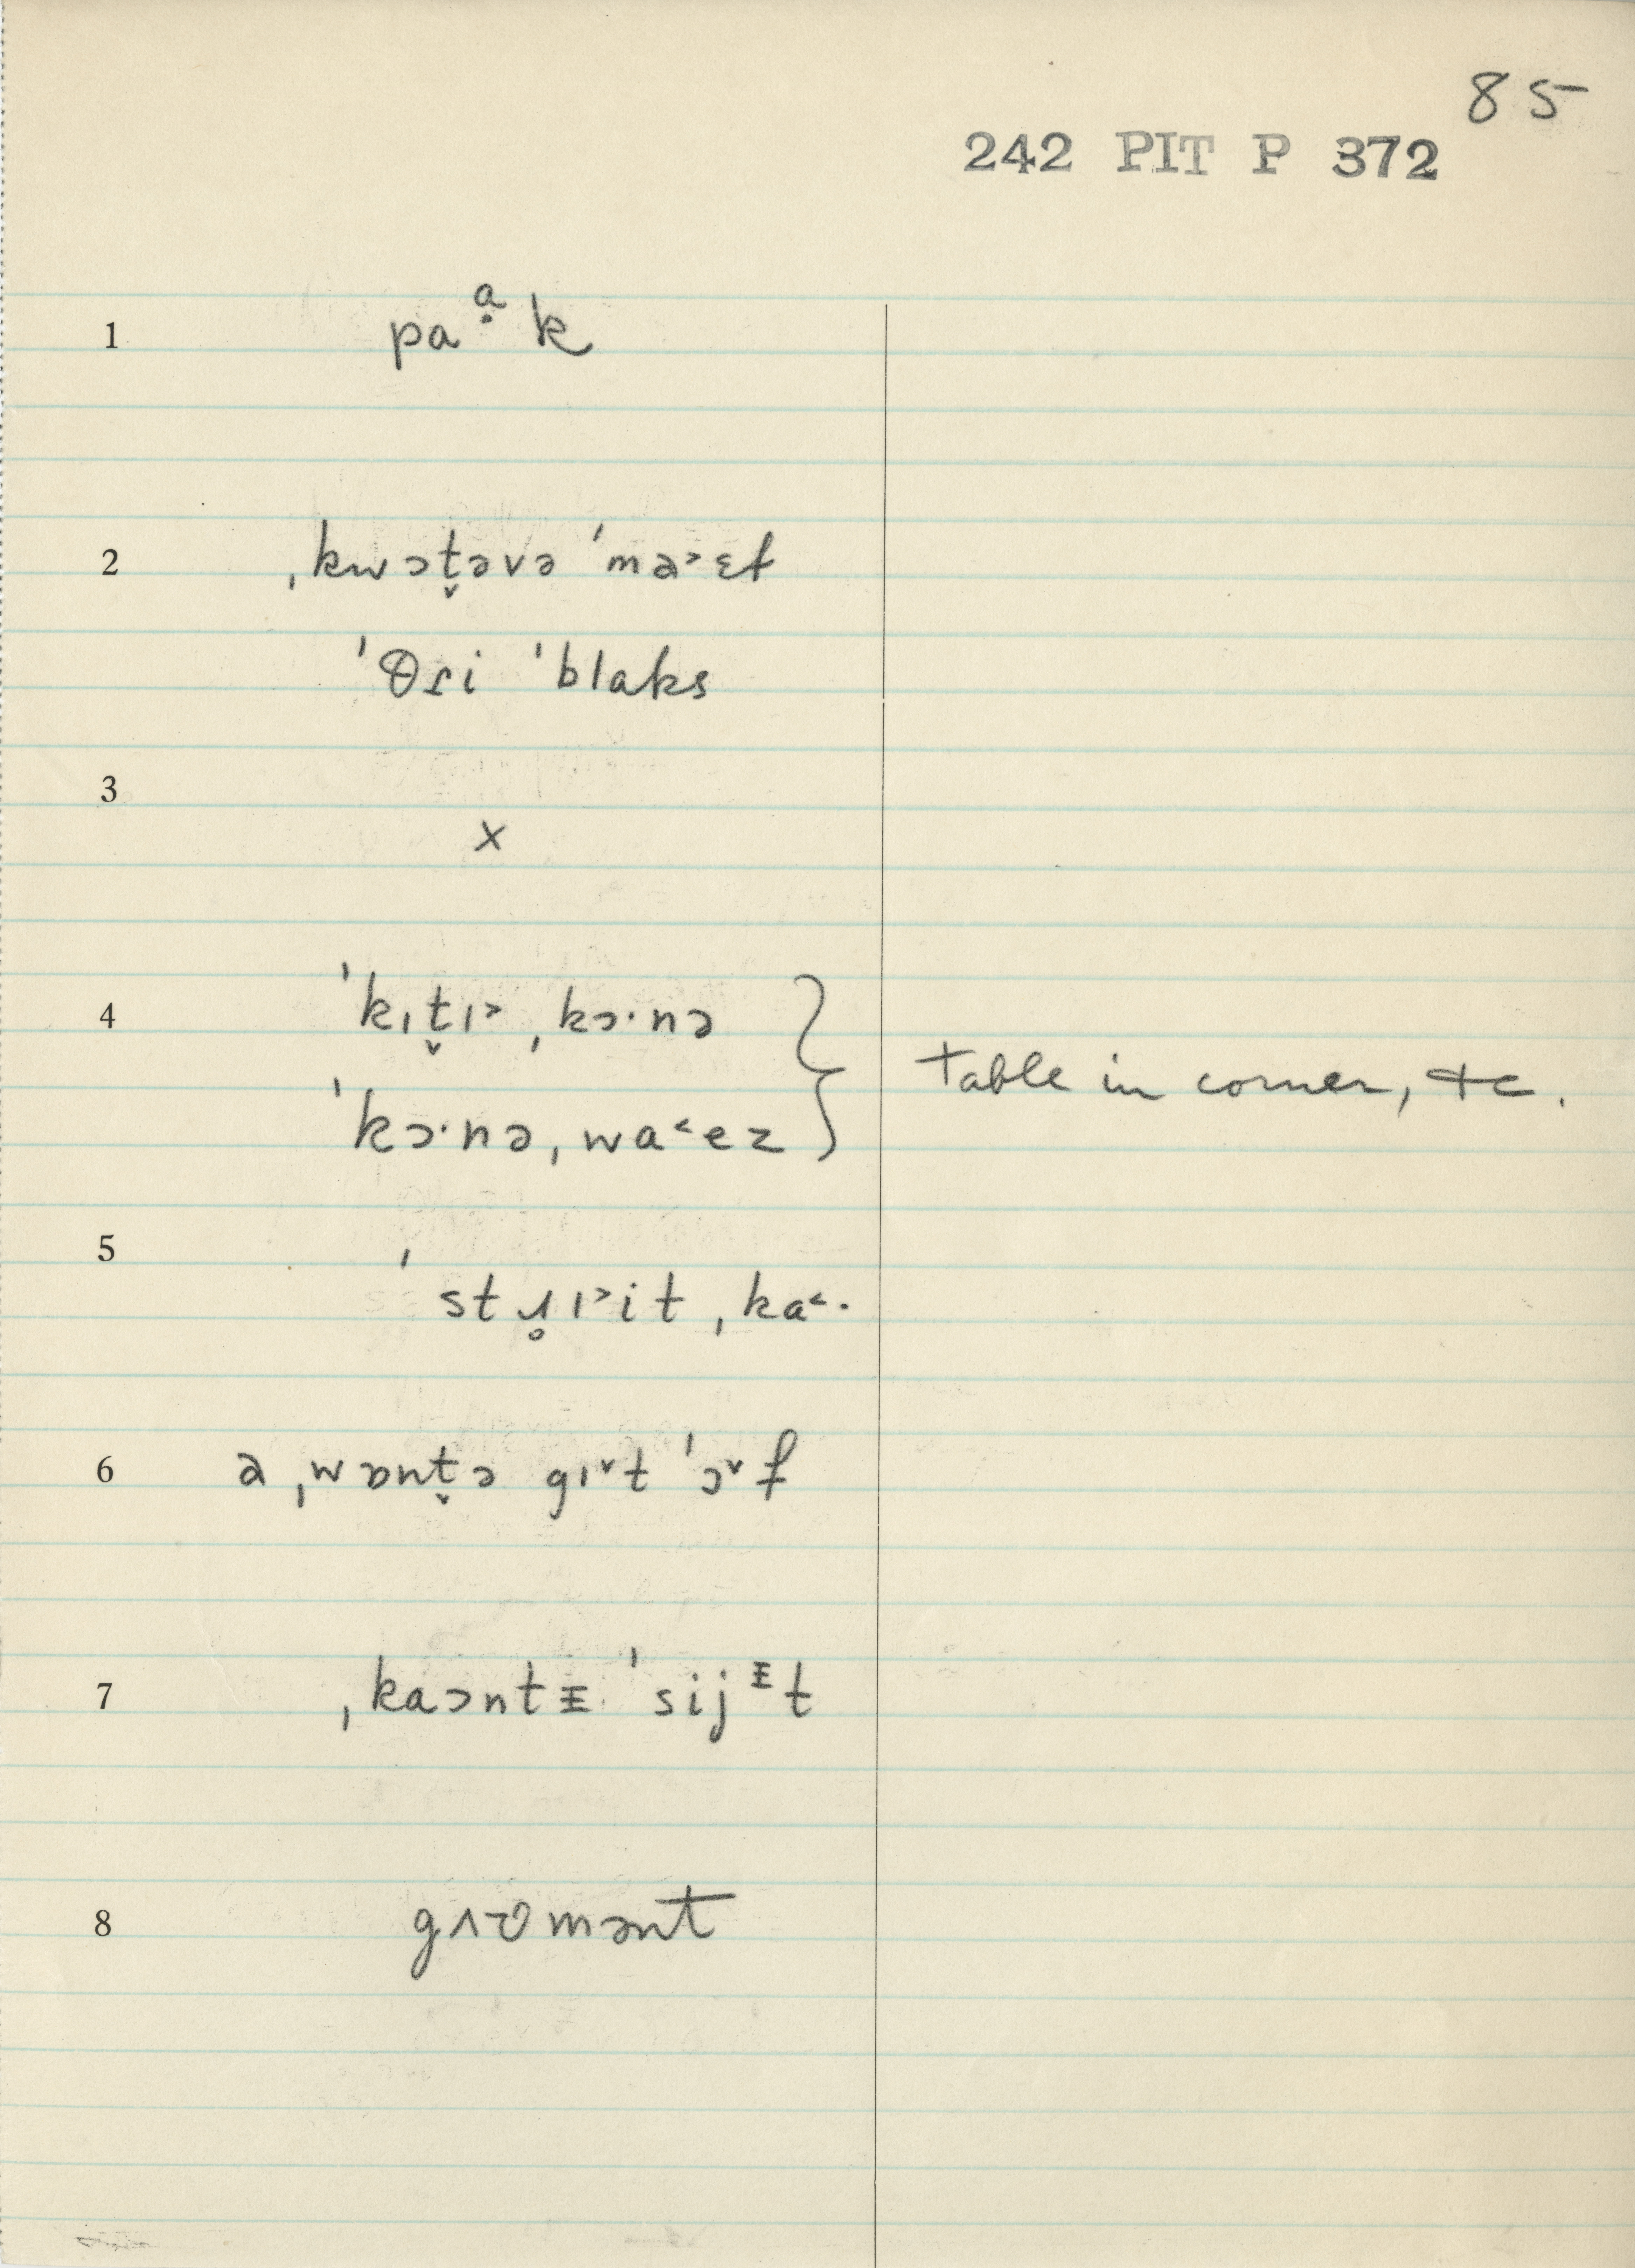 85
242 PIT P 372
1 paᵃ̣k
2 ˌkwɔt̬əvə ˈma˃ɛɫ
ˈθɾi ˈblaks
3 x
4 ˈkɪt̬ɪ˃ ˌkɔ·nə
ˈkɔ·nə ˌwa˂ez
table in corner, &c.
5 ˈstɹ̥ɪ˃it ˌka˂·
6 a ˌwɒnt̬ə gɪˇt ˈɔˇf
7 ˌkaɔntᵻ ˈsijᵻt
8 gʌʊmənt